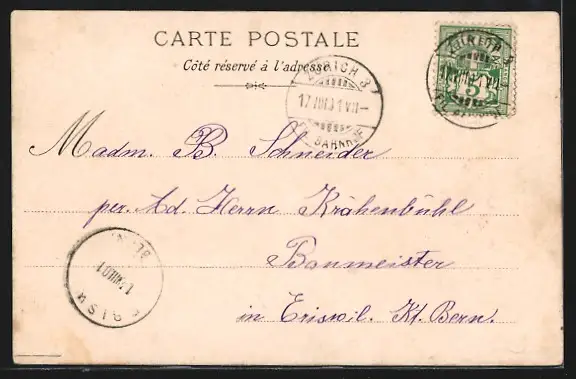 CARTE POSTALE
Côté réservé à l'adresse
ZÜRICH 3
17 VIII 01 VII–
BAHNHOF
ZÜRICH 3
5
Madm. B. Schneider
per. Ad. Herrn Krähenbühl
Baumeister
in Eriswil. Kt. Bern.
ERISWIL
17 VIII 01